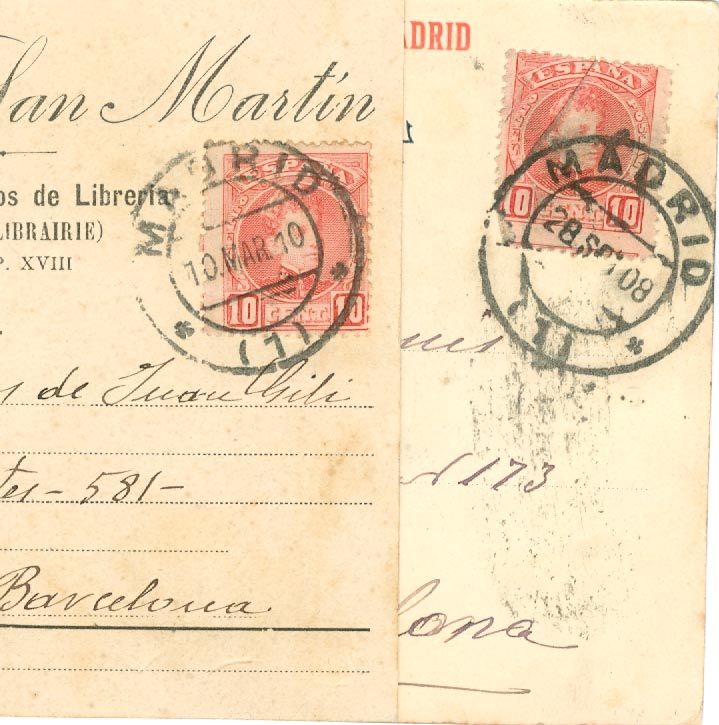 San Martín
os de Librería
LIBRAIRIE)
P. XVIII
MADRID
10.MAR.10
(1)
ESPAÑA
10 CENT. 10
s de Juan Gili
tes - 581 -
Barcelona
ADRID
ESPAÑA
10 10
MADRID
28 SEP 08
(1)
173
lona